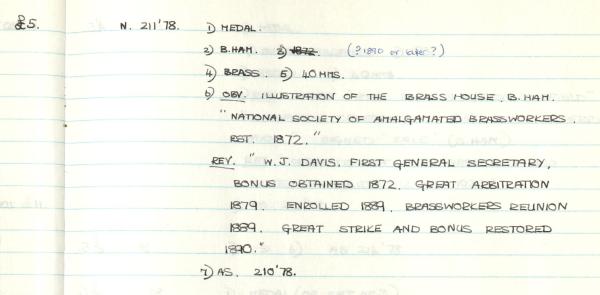 £5. N. 211'78. 1) MEDAL.
2) B.HAM. 3) 1872. (?1890 or later?)
4) BRASS. 5) 40 MMS.
6) OBV. ILLUSTRATION OF THE BRASS HOUSE, B.HAM.
"NATIONAL SOCIETY OF AMALGAMATED BRASSWORKERS.
EST. 1872."
REV. "W.J. DAVIS, FIRST GENERAL SECRETARY,
BONUS OBTAINED 1872, GREAT ARBITRATION
1879. ENROLLED 1889, BRASSWORKERS REUNION
1889. GREAT STRIKE AND BONUS RESTORED
1890."
7) AS. 210'78.